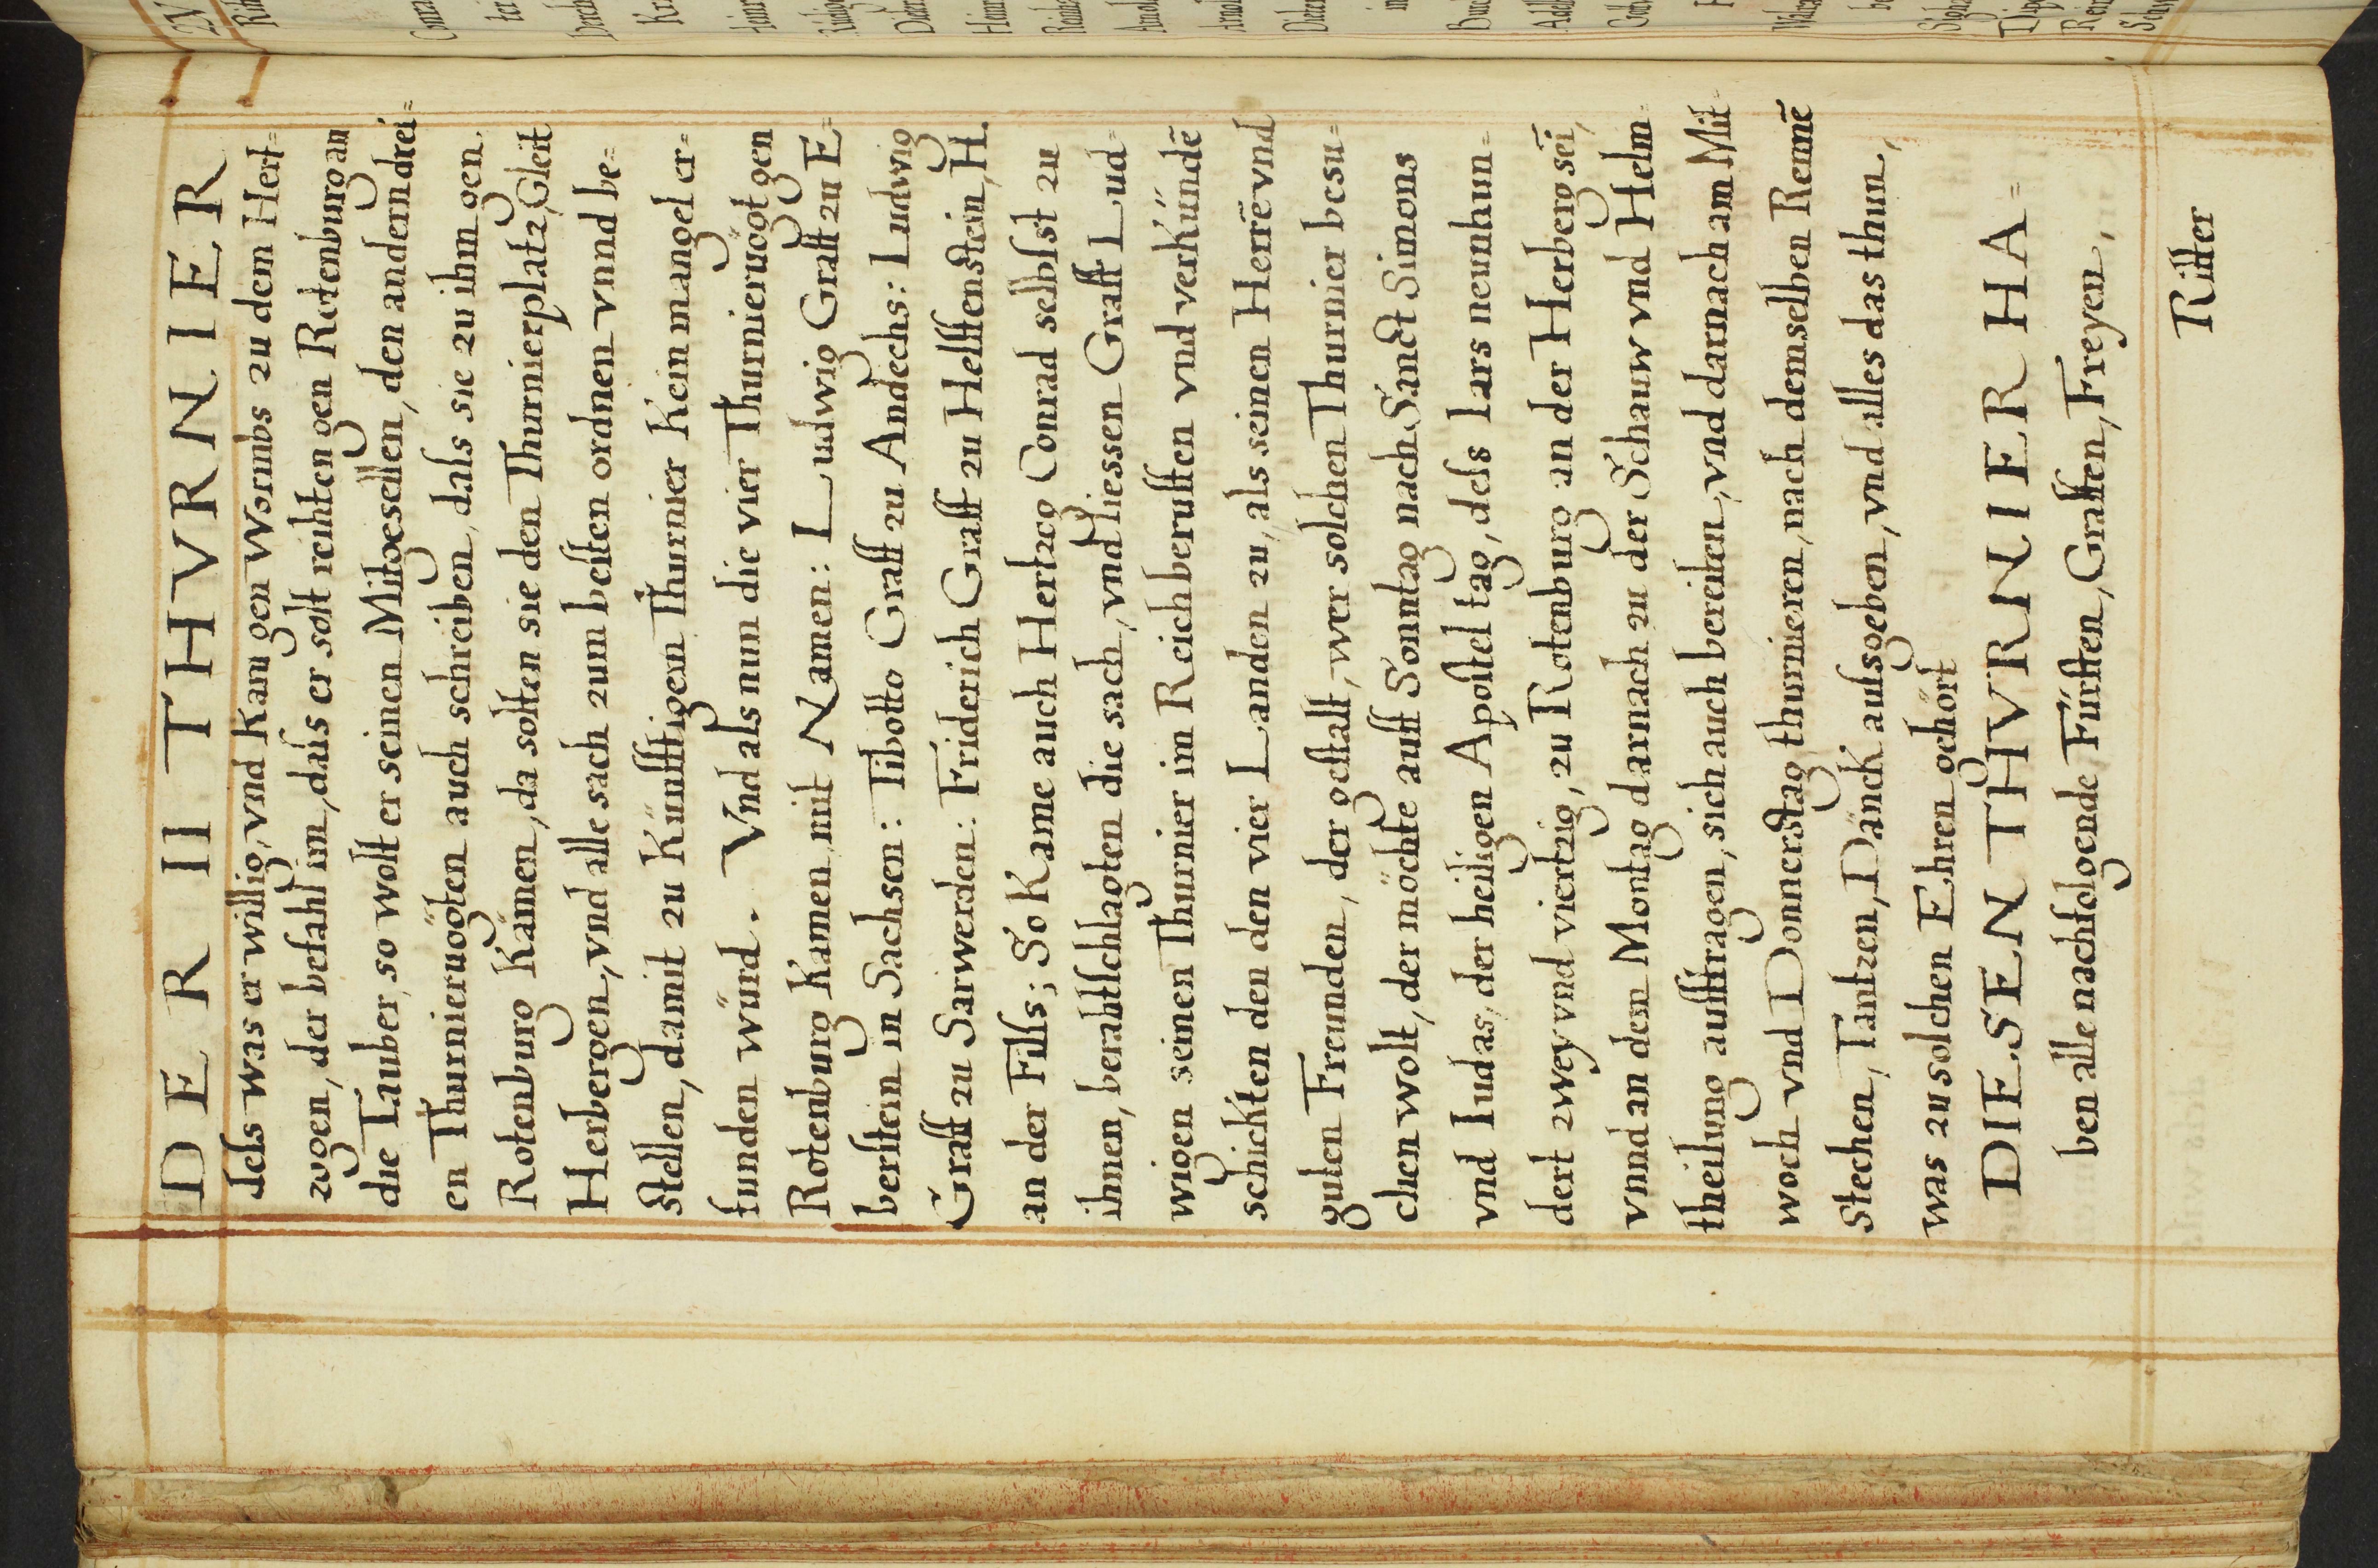 DER II THVRNIER
dess was er willig, vnd Kam gen Wormbs zu dem Hert=
zogen, der befahl im, dass er solt reihten gen Rotenburg an
die Tauber, so wolt er seinen Mitgesellen, den andern drei=
en Thurnieruögten auch schreiben, dass sie zu ihm gen
Rotenburg Kämen, da solten sie den Thurnierplatz, Gleit
Herbergen, vnd alle sach zum besten ordnen vnnd be=
stellen, damit zu Künfftigem Thurnier Kein mangel er=
funden würd. Vnd als nun die vier Thurnieruögt gen
Rotenburg Kamen, mit Namen: Ludwig Graff zu E=
berstein in Sachsen: Tibotto Graff zu Andechs: Ludwig
Graff zu Sarwerden: Friderich Graff zu Helffenstein, H.
an der Filss; So Kame auch Hertzog Conrad selbst zu
ihnen, berahtschlagten die sach, vnd liessen Graff Lud=
wigen seinen Thurnier im Reich berufften vnd verKündē
schickten den den vier Landen zu, als seinen Herrē vnd
guten Freunden, der gestalt, wer solchen Thurnier besu=
chen wolt, der möchte auff Sonntag nach Sanct Simons
vnd Iudas, der heiligen Apostel tag, dess Iars neunhun=
dert zwey vnd viertzig, zu Rotenburg an der Herberg sei,
vnnd an dem Montag darnach zu der Schauw vnd Helm=
theilung aufftragen, sich auch bereiten, vnd darnach am Mit=
woch vnd Donnerstag thurnieren, nach demselben Rennē
Stechen, Tantzen, Dänck aussgeben, vnd alles das thun,
was zu solchen Ehren gehört
DIESEN THVRNIER HA=
ben alle nachfolgende Fürsten, Graffen, Freyen,
Ritter